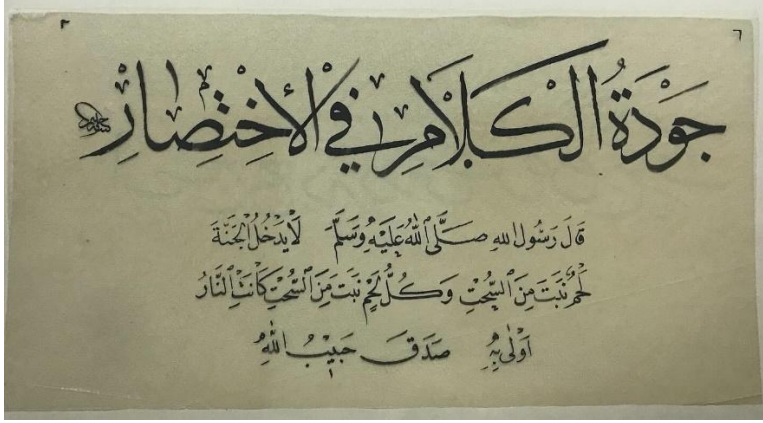 ٦ ٢
جَوْدَةُ الْكَلَامِ فِي الْإِخْتِصَارِ
قَالَ رَسُولُ اللهِ صَلَّى اللهُ عَلَيْهِ وَسَلَّمَ لَا يَدْخُلُ الْجَنَّةَ
لَحْمٌ نَبَتَ مِنَ السُّحْتِ وَكُلُّ لَحْمٍ نَبَتَ مِنَ السُّحْتِ كَانَتِ النَّارُ
اَوْلٰى بِهِ صَدَقَ حَبِيْبُ اللهِ
١